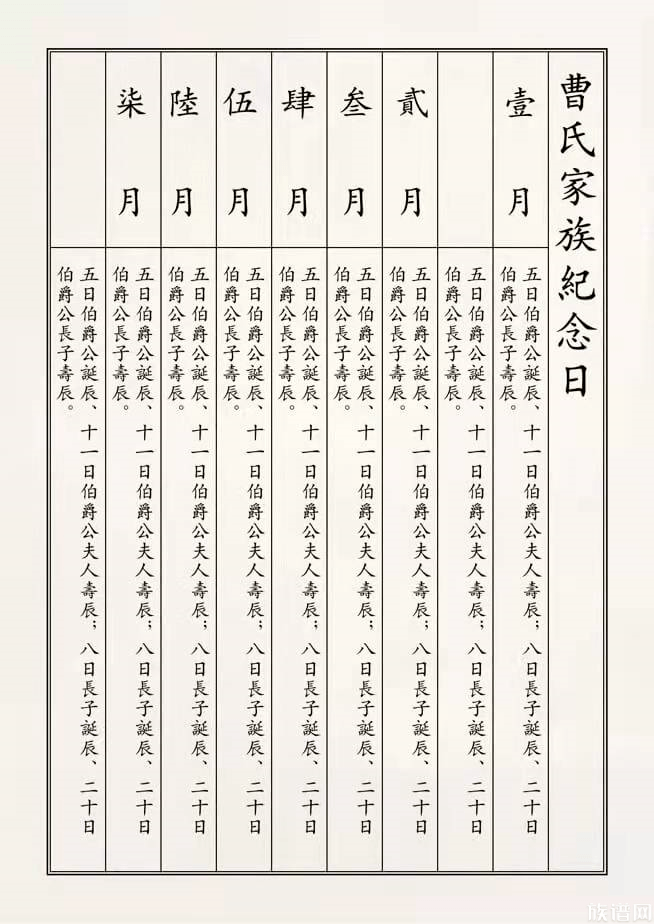 曹氏家族紀念日
壹月
五日伯爵公誕辰、十一日伯爵公夫人壽辰；八日長子誕辰、二十日
伯爵公長子壽辰。
五日伯爵公誕辰、十一日伯爵公夫人壽辰；八日長子誕辰、二十日
伯爵公長子壽辰。
貳月
五日伯爵公誕辰、十一日伯爵公夫人壽辰；八日長子誕辰、二十日
伯爵公長子壽辰。
叁月
五日伯爵公誕辰、十一日伯爵公夫人壽辰；八日長子誕辰、二十日
伯爵公長子壽辰。
肆月
五日伯爵公誕辰、十一日伯爵公夫人壽辰；八日長子誕辰、二十日
伯爵公長子壽辰。
伍月
五日伯爵公誕辰、十一日伯爵公夫人壽辰；八日長子誕辰、二十日
伯爵公長子壽辰。
陸月
五日伯爵公誕辰、十一日伯爵公夫人壽辰；八日長子誕辰、二十日
伯爵公長子壽辰。
柒月
五日伯爵公誕辰、十一日伯爵公夫人壽辰；八日長子誕辰、二十日
伯爵公長子壽辰。
五日伯爵公誕辰、十一日伯爵公夫人壽辰；八日長子誕辰、二十日
伯爵公長子壽辰。
族谱网